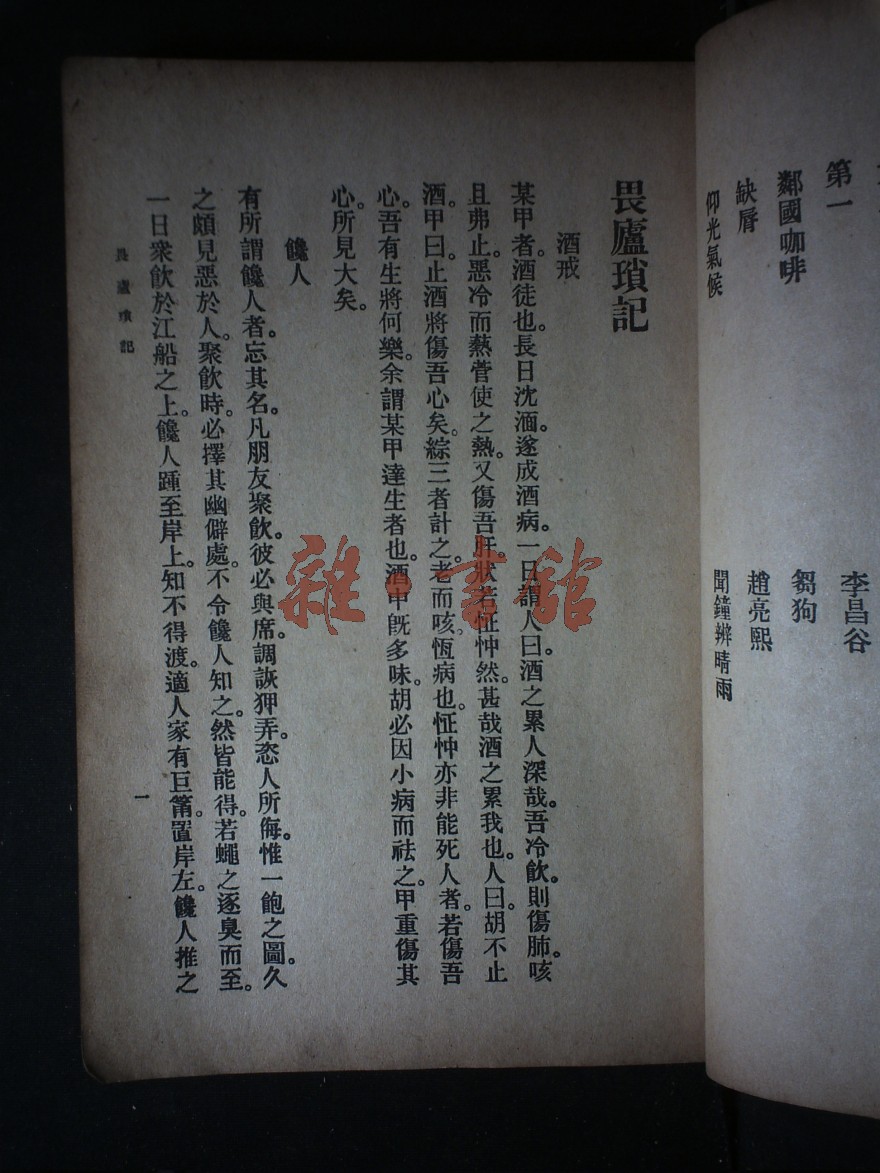 第一
李昌谷
鄰國咖啡
芻狗
缺脣
趙亮熙
仰光氣候
聞鐘辨晴雨
畏廬瑣記
酒戒
某甲者。酒徒也。長日沈湎。遂成酒病。一日謂人曰。酒之累人深哉。吾冷飲。則傷肺。咳
且弗止。惡冷而熱膏使之熱。又傷吾肝。狀若怔忡然。甚哉酒之累我也。人曰。胡不止
酒。甲曰。止酒將傷吾心矣。綜三者計之。老而咳。恆病也。怔忡亦非能死人者。若傷吾
心。吾有生將何樂。余謂某甲達生者也。酒中旣多味。胡必因小病而祛之。甲重傷其
心。所見大矣。
饞人
有所謂饞人者。忘其名。凡朋友聚飲。彼必與席。調詼狎弄。恣人所侮。惟一飽之圖。久
之頗見惡於人。聚飲時。必擇其幽僻處。不令饞人知之。然皆能得。若蠅之逐臭而至。
一日衆飲於江船之上。饞人踵至岸上。知不得渡。適人家有巨篛。置岸左。饞人推之
畏廬瑣記
一
雜·書館